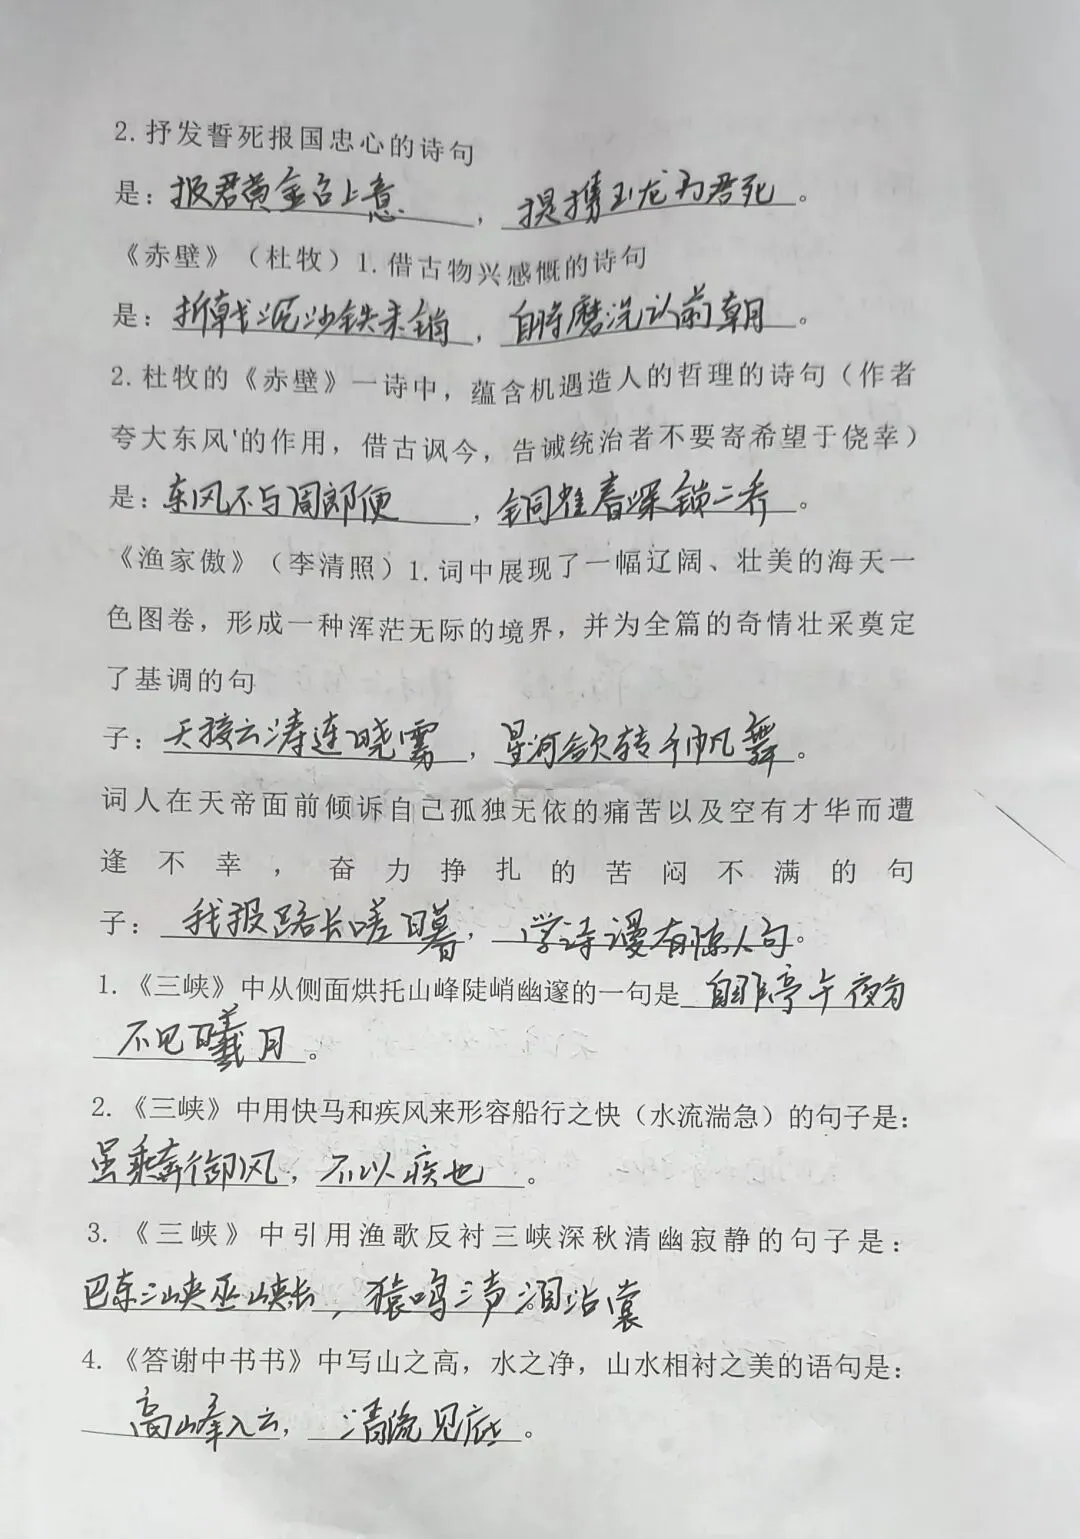 2. 抒发誓死报国忠心的诗句
是：报君黄金台上意，提携玉龙为君死。
《赤壁》（杜牧）1. 借古物兴感慨的诗句
是：折戟沉沙铁未销，自将磨洗认前朝。
2. 杜牧的《赤壁》一诗中，蕴含机遇造人的哲理的诗句（作者
夸大东风'的作用，借古讽今，告诫统治者不要寄希望于侥幸）
是：东风不与周郎便，铜雀春深锁二乔。
《渔家傲》（李清照）1. 词中展现了一幅辽阔、壮美的海天一
色图卷，形成一种浑茫无际的境界，并为全篇的奇情壮采奠定
了基调的句
子：天接云涛连晓雾，星河欲转千帆舞。
词人在天帝面前倾诉自己孤独无依的痛苦以及空有才华而遭
逢不幸，奋力挣扎的苦闷不满的句
子：我报路长嗟日暮，学诗谩有惊人句。
1. 《三峡》中从侧面烘托山峰陡峭幽邃的一句是 自非亭午夜分
不见曦月。
2. 《三峡》中用快马和疾风来形容船行之快（水流湍急）的句子是：
虽乘奔御风，不以疾也。
3. 《三峡》中引用渔歌反衬三峡深秋清幽寂静的句子是：
巴东三峡巫峡长，猿鸣三声泪沾裳
4. 《答谢中书书》中写山之高，水之净，山水相衬之美的语句是：
高峰入云，清流见底。